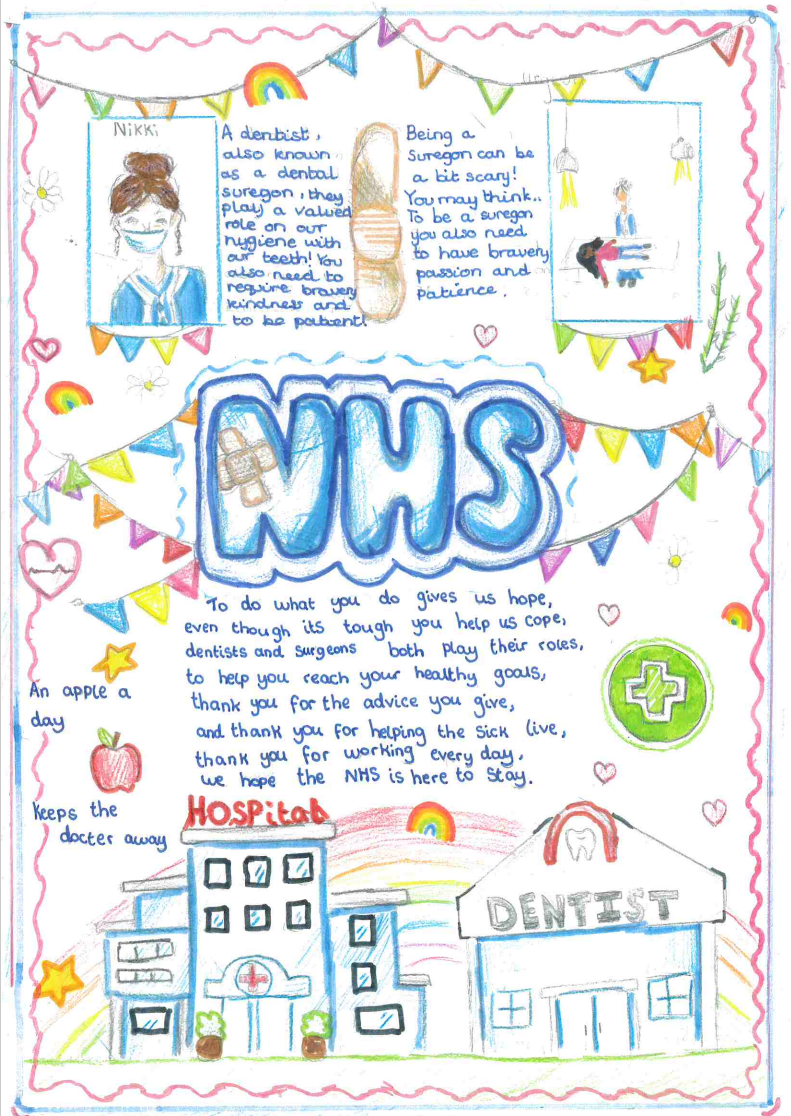 Nikki
A dentist,
also known
as a dental
suregon, they
play a valued
role on our
hygiene with
our teeth! You
also need to
require bravery
kindness and
to be patient!
Being a
Suregon can be
a bit scary!
You may think..
To be a suregon
you also need
to have bravery
passion and
patience.
NHS
To do what you do gives us hope,
even though its tough you help us cope,
dentists and surgeons both play their roles,
to help you reach your healthy goals,
thank you for the advice you give,
and thank you for helping the sick live,
thank you for working every day,
we hope the NHS is here to stay.
An apple a
day
keeps the
docter away
HOSPital
DENTIST